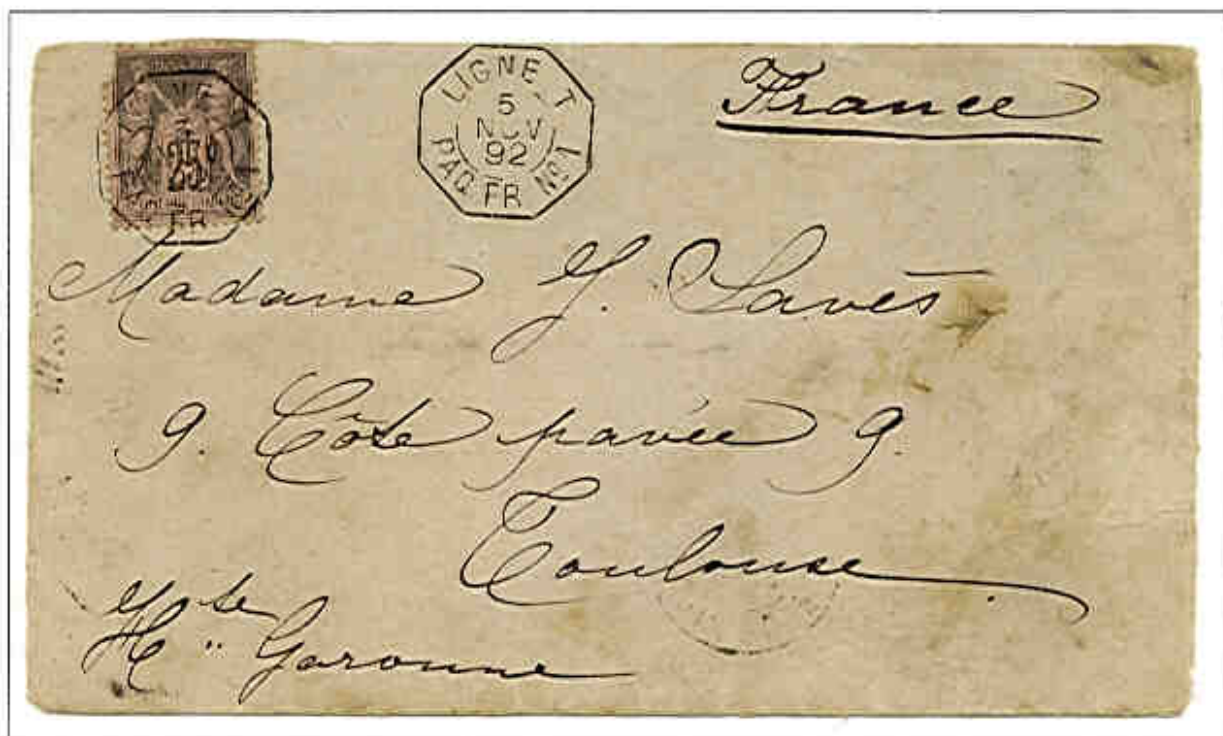 LIGNE T
5
NOV
92
PAQ. FR. Nº 1
France
25
FR.
Madame J. Lavés
9. Côte pavée 9.
Toulouse
Hte Garonne